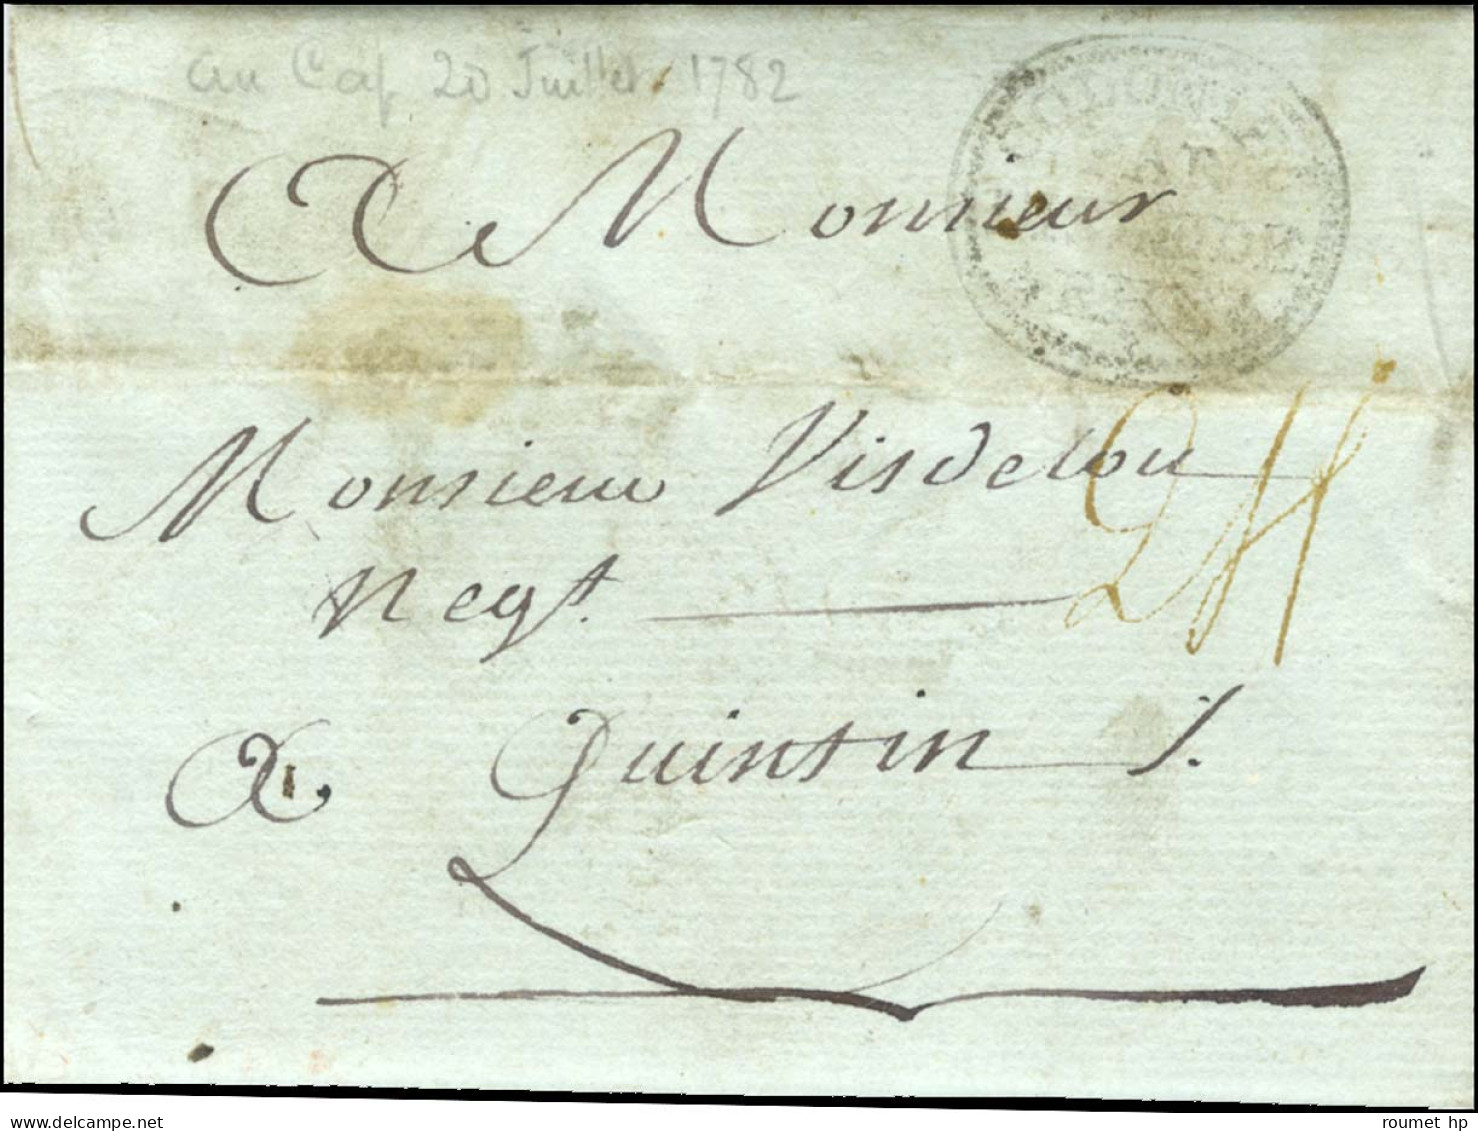 au Cap 20 Juillet 1782
COLONIES
PAR
A Monsieur
Monsieur Visdelou
Negt.
24
a Quintin /.
roumet hp